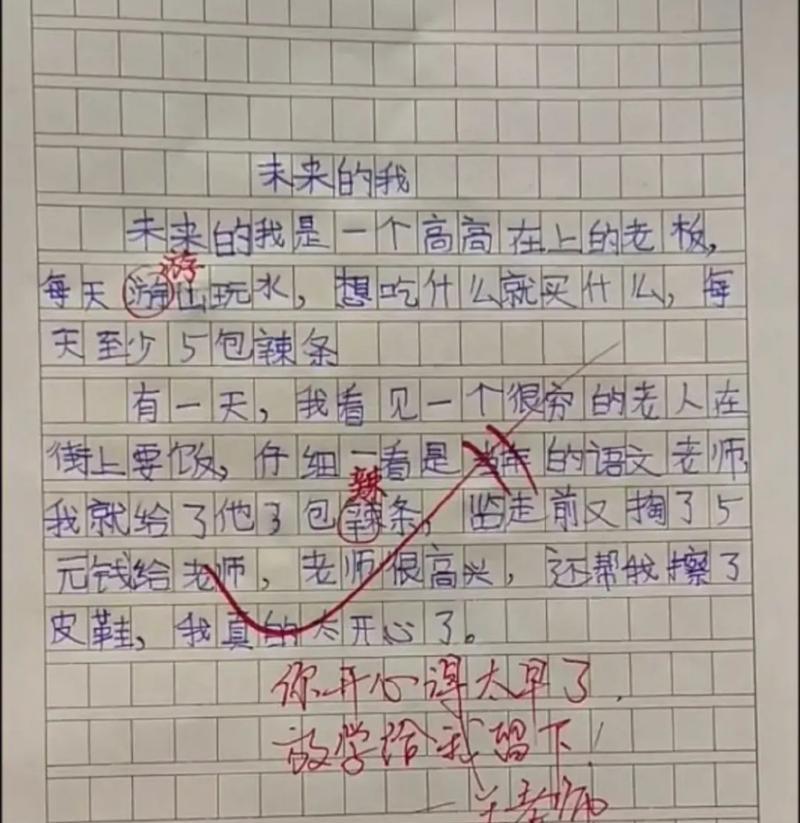 未来的我
未来的我是一个高高在上的老板，
游
每天游山玩水，想吃什么就买什么，每
天至少5包辣条
有一天，我看见一个很穷的老人在
街上要饭，仔细一看是当年的语文老师
辣
我就给了他了包辣条，临走前又掏了5
元钱给老师，老师很高兴，还帮我擦了
皮鞋，我真的太开心了。
你开心得太早了，
放学给我留下！
老师